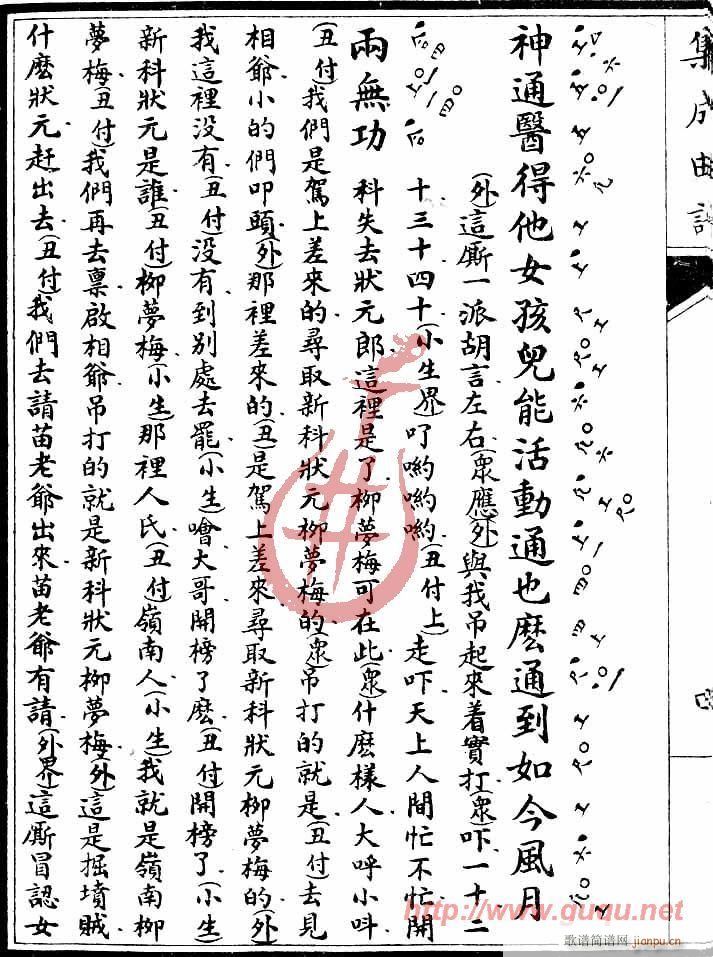 集成曲譜
神通醫得他女孩兒能活動通也麽通到如今風月
(外)這厮一派胡言左右(衆應)(外)與我吊起來着實打(衆)吓一十二
十三十四十(小生界)吖喲喲喲(丑付上)走吓天上人間忙不忙開
兩無功 科失去狀元郎這裡是了柳夢梅可在此(衆)什麽樣人大呼小呌
(丑付)我們是駕上差來的尋取新科狀元柳夢梅的(衆)吊打的就是(丑付)去見
相爺小的們叩頭(外)那裡差來的(丑)是駕上差來尋取新科狀元柳夢梅的(外)
我這裡没有(丑付)没有到别處去罷(小生)噲大哥開榜了麽(丑付)開榜了(小生)
新科狀元是誰(丑付)柳夢梅(小生)那裡人氏(丑付)嶺南人(小生)我就是嶺南柳
夢梅(丑付)我們再去禀啟相爺吊打的就是新科狀元柳夢梅(外)這是掘墳賊
什麽狀元赶出去(丑付)我們去請苗老爺出來苗老爺有請(外界)這厮冒認女
http://www.guqu.net
歌谱简谱网 jianpu.cn